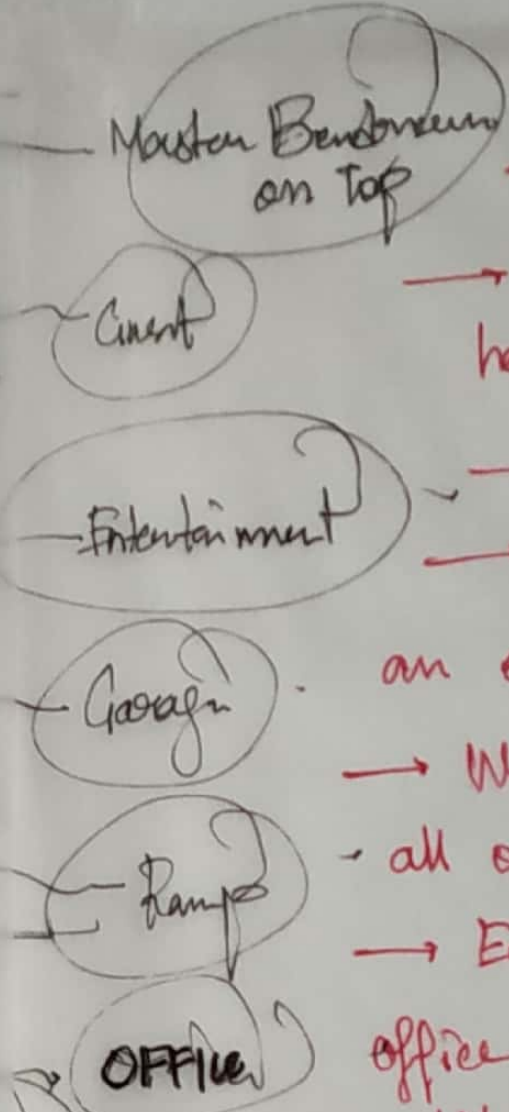 Master Bendoneum
on Top
Guest
he
Entertainment
an
W
Garage
all o
Ramp
E
OFFICE office